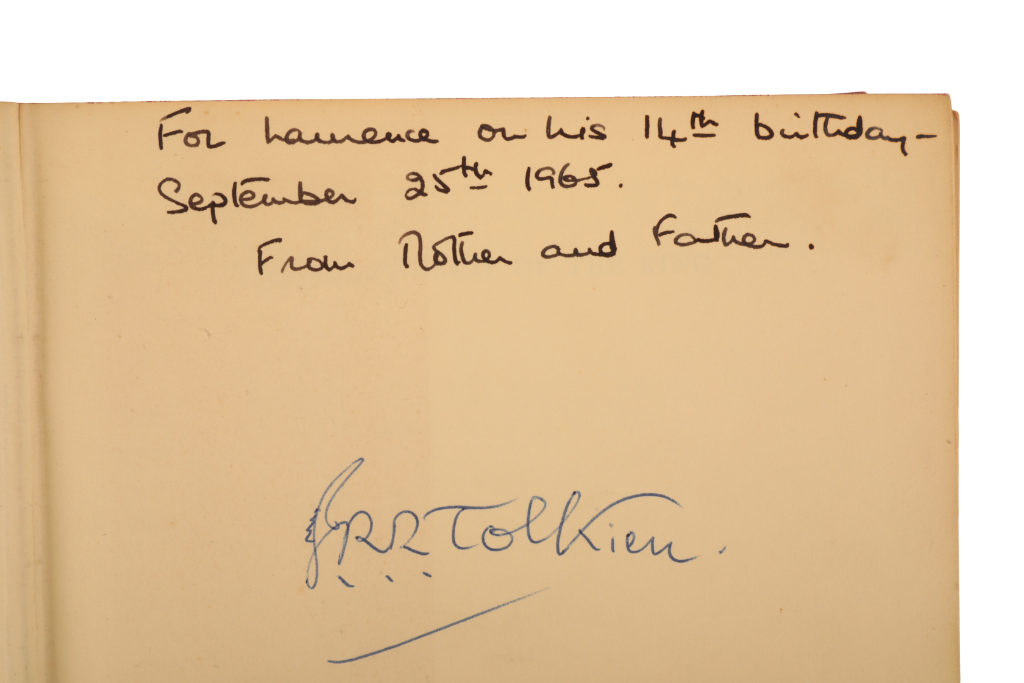 For Laurence on his 14th birthday -
September 25th 1965.
From Mother and Father.
JRRTolkien.